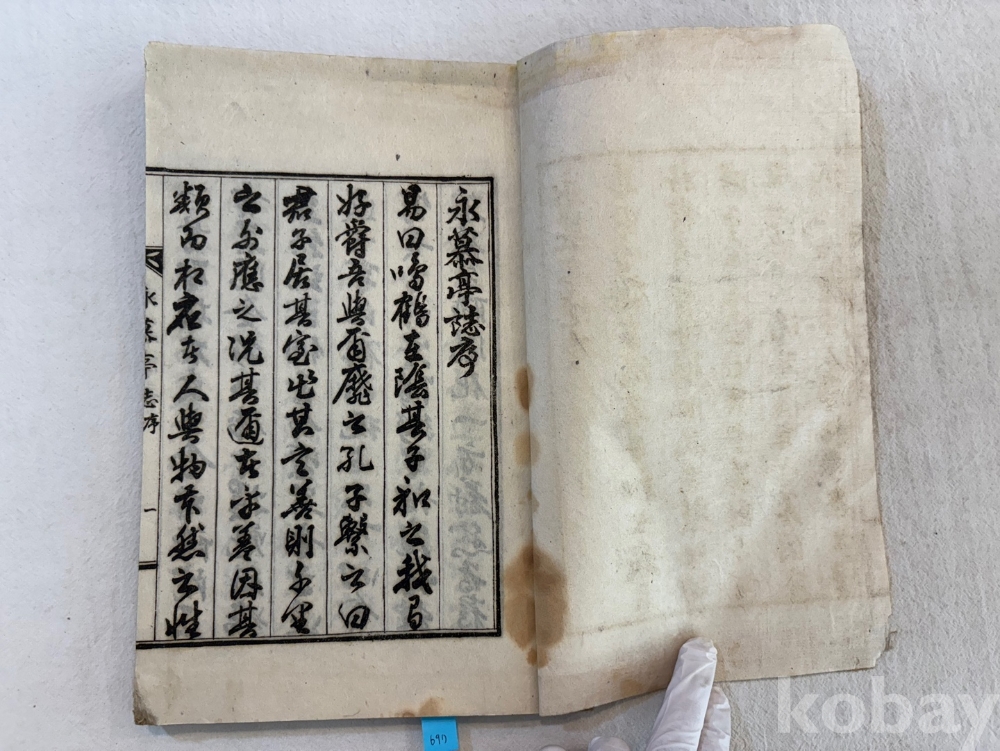 永慕亭誌序
易曰鳴鶴在陰其子和之我有
好爵吾與爾靡之孔子繫之曰
君子居其室出其言善則千里
之外應之況其邇者乎蓋因其
類而相者人與物本然之性
永慕亭志序
一
697
kobay